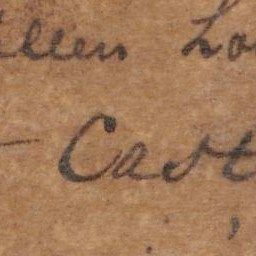 ellen Lo
Cast